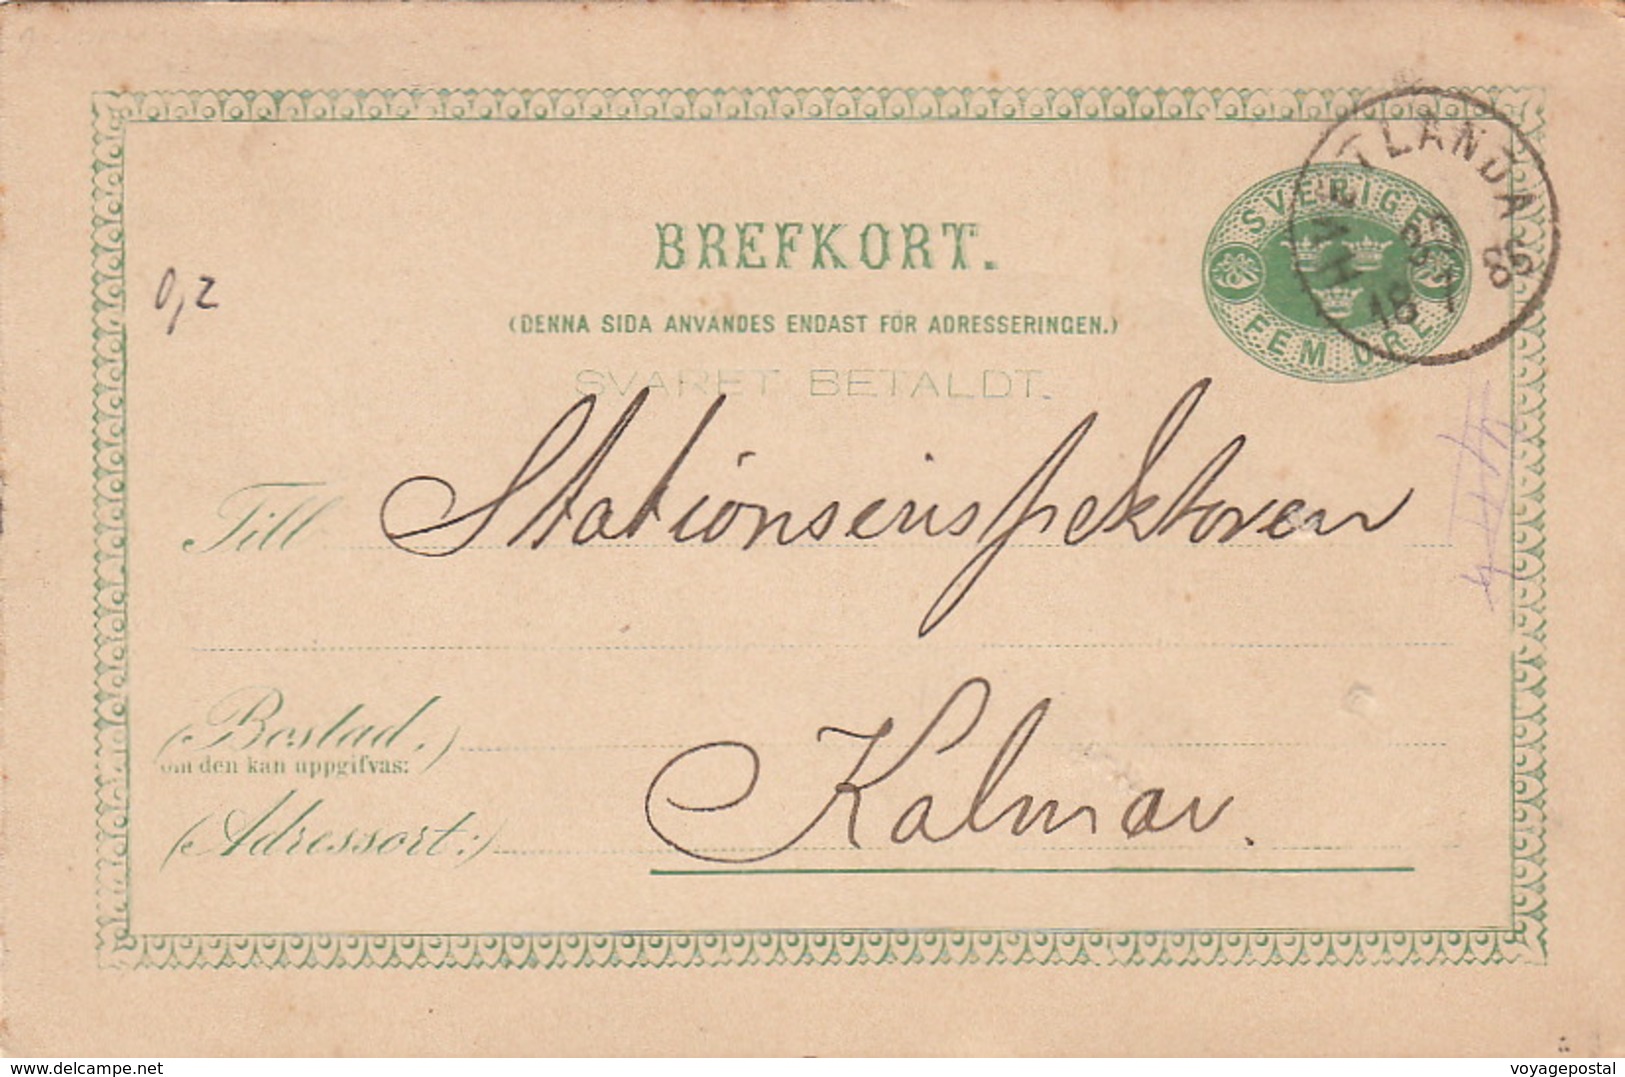 HVETLANDA
30
18 7 86
SVERIGE
FEM ÖRE
BREFKORT.
(DENNA SIDA ANVÄNDES ENDAST FÖR ADRESSERINGEN.)
SVARET BETALDT.
0,2
Till Stationsinspektoren
(Bostad,)
om den kan uppgifvas:
(Adressort:) Kalmar.
www.delcampe.net
voyagepostal